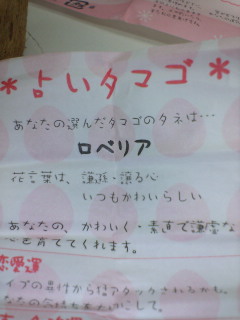 *占いタマゴ*
あなたの選んだタマゴのタネは…
ロベリア
花言葉は、謙遜・譲る心
いつもかわいらしい
あなたの、かわいく・素直で謙虚な
心を育ててくれます。
恋愛運
イプの異性から猛アタックされるかも。